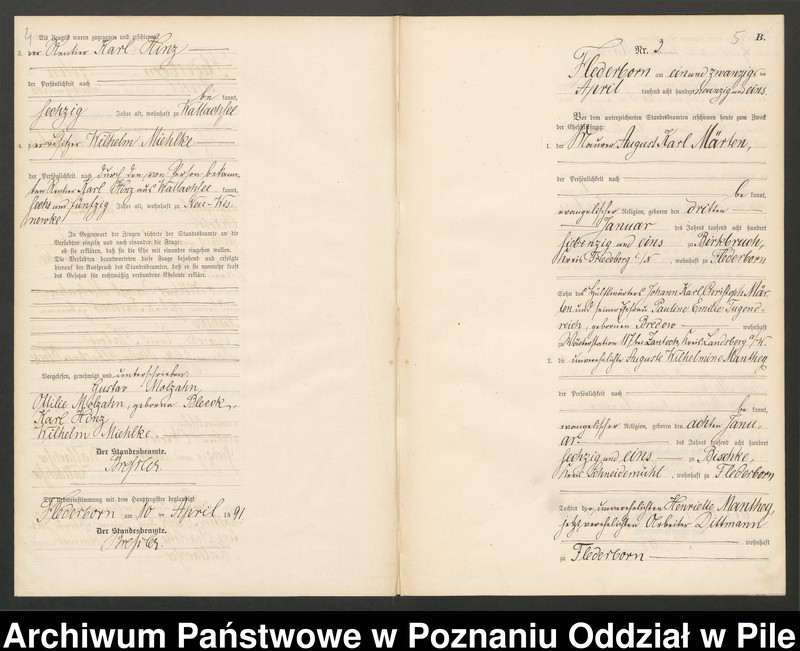 4
Als Zeugen waren zugezogen und erschienen:
3. der Rentier Karl Hinz
der Persönlichkeit nach
be kannt,
sechzig Jahre alt, wohnhaft zu Kattachsee
4. der Besitzer Wilhelm Miehlke
der Persönlichkeit nach durch den, von Person bekann-
ten Rentier Karl Hinz aus Kattachsee kannt,
sechs und fünfzig Jahre alt, wohnhaft zu Neu-Wis-
newke
In Gegenwart der Zeugen richtete der Standesbeamte an die
Verlobten einzeln und nach einander die Frage:
ob sie erklären, daß sie die Ehe mit einander eingehen wollen.
Die Verlobten beantworteten diese Frage bejahend und erfolgte
hierauf der Ausspruch des Standesbeamten, daß er sie nunmehr kraft
des Gesetzes für rechtmäßig verbundene Eheleute erkläre.
Vorgelesen, genehmigt und unterschrieben.
Gustav Molzahn,
Ottilie Molzahn, geborene Bleeck.
Karl Hinz
Wilhelm Miehlke.
Der Standesbeamte.
Die Uebereinstimmung mit dem Hauptregister beglaubigt
Flederborn am 10 ten April 1891.
Der Standesbeamte.
5
B.
Nr. 3
Flederborn am ein und zwanzigs ten
April tausend acht hundert neunzig und eins
Vor dem unterzeichneten Standesbeamten erschienen heute zum Zweck
der Eheschließung:
1. der Maurer August Karl Märten,
der Persönlichkeit nach
be kannt,
evangelischer Religion, geboren den dritten
Januar des Jahres tausend acht hundert
siebenzig und eins zu Birkbruch,
Kreis Friedeberg i/N, wohnhaft zu Flederborn
Sohn des Hülfswärters Johann Karl Christoph Mär-
ten und seiner Ehefrau Pauline Emilie Tugend-
reich, geborenen Bredow wohnhaft
zu Wärterstation 117 bei Zantoch, Kreis Landsberg a/W.
2. die unverehelichte Auguste Wilhelmine Manthey
der Persönlichkeit nach
be kannt,
evangelischer Religion, geboren den achten Janu-
ar des Jahres tausend acht hundert
sechzig und eins zu Bischke,
Kreis Schneidemühl, wohnhaft zu Flederborn
Tochter der unverehelichten Henriette Manthey,
jetzt verehelichten Arbeiter Dittmann
wohnhaft
zu Flederborn
Archiwum Państwowe w Poznaniu Oddział w Pile